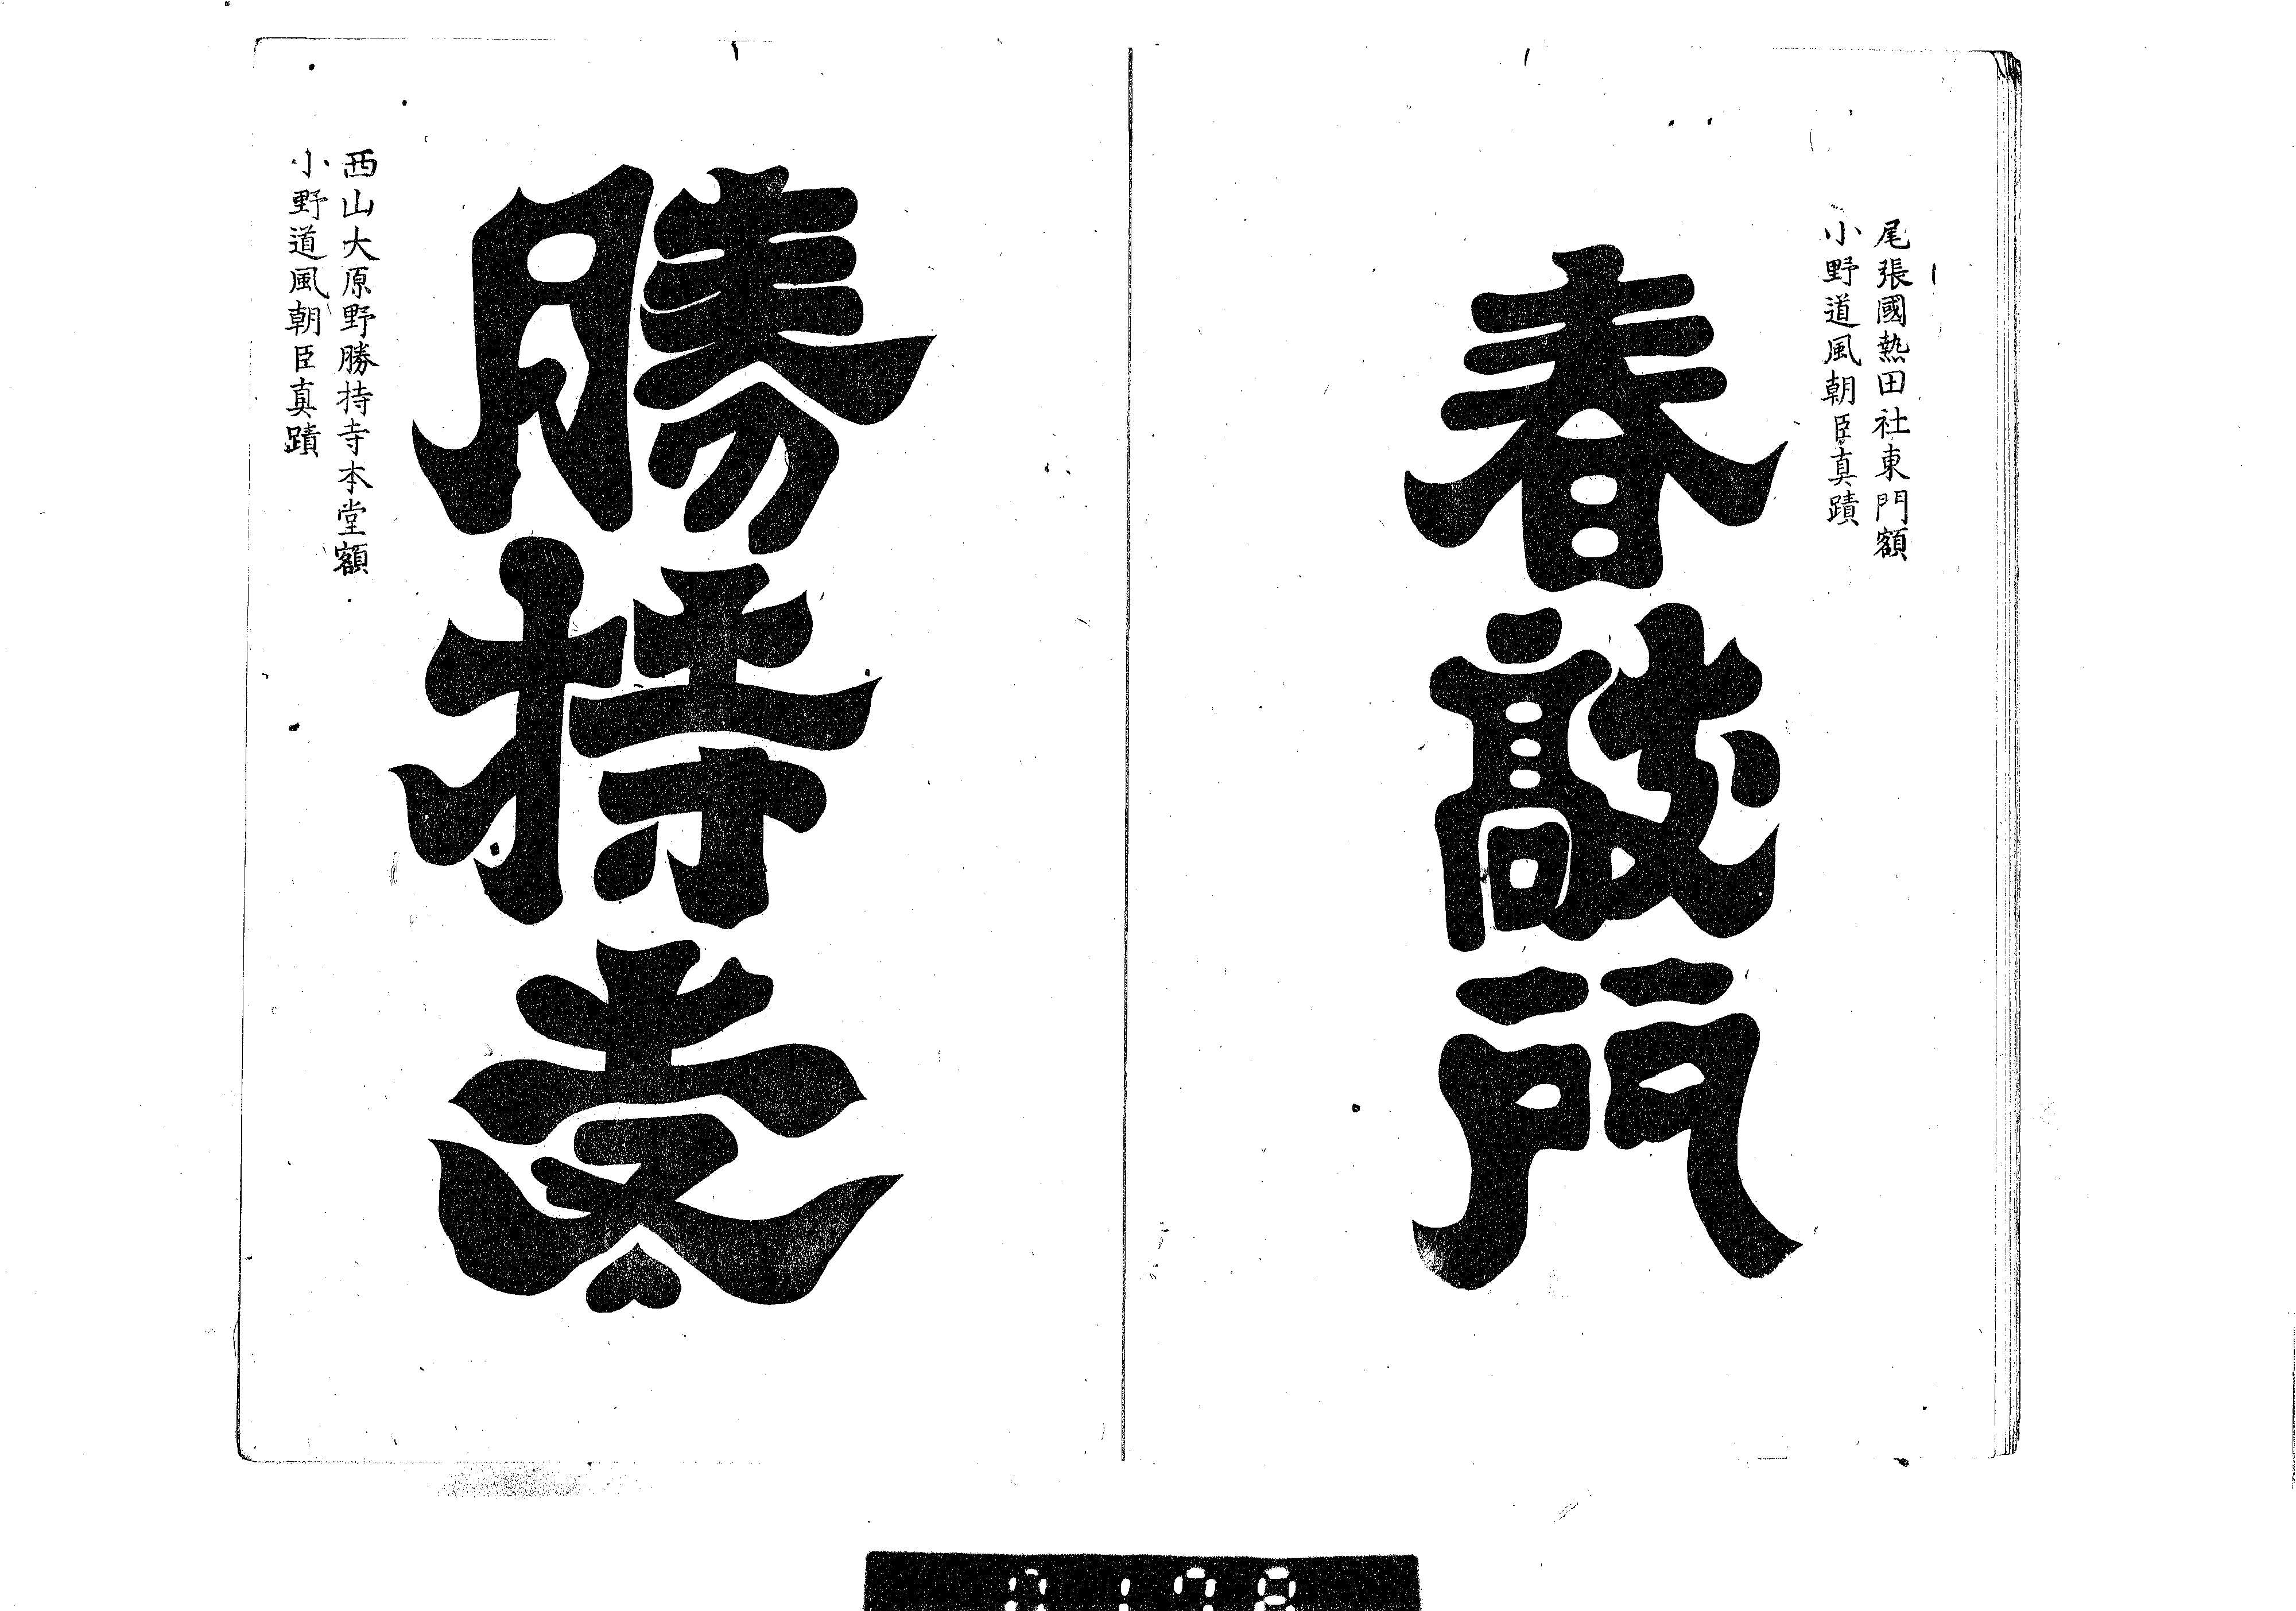 尾張國熱田社東門額
小野道風朝臣真蹟
春敲門
勝持寺
西山大原野勝持寺本堂額
小野道風朝臣真蹟
0178